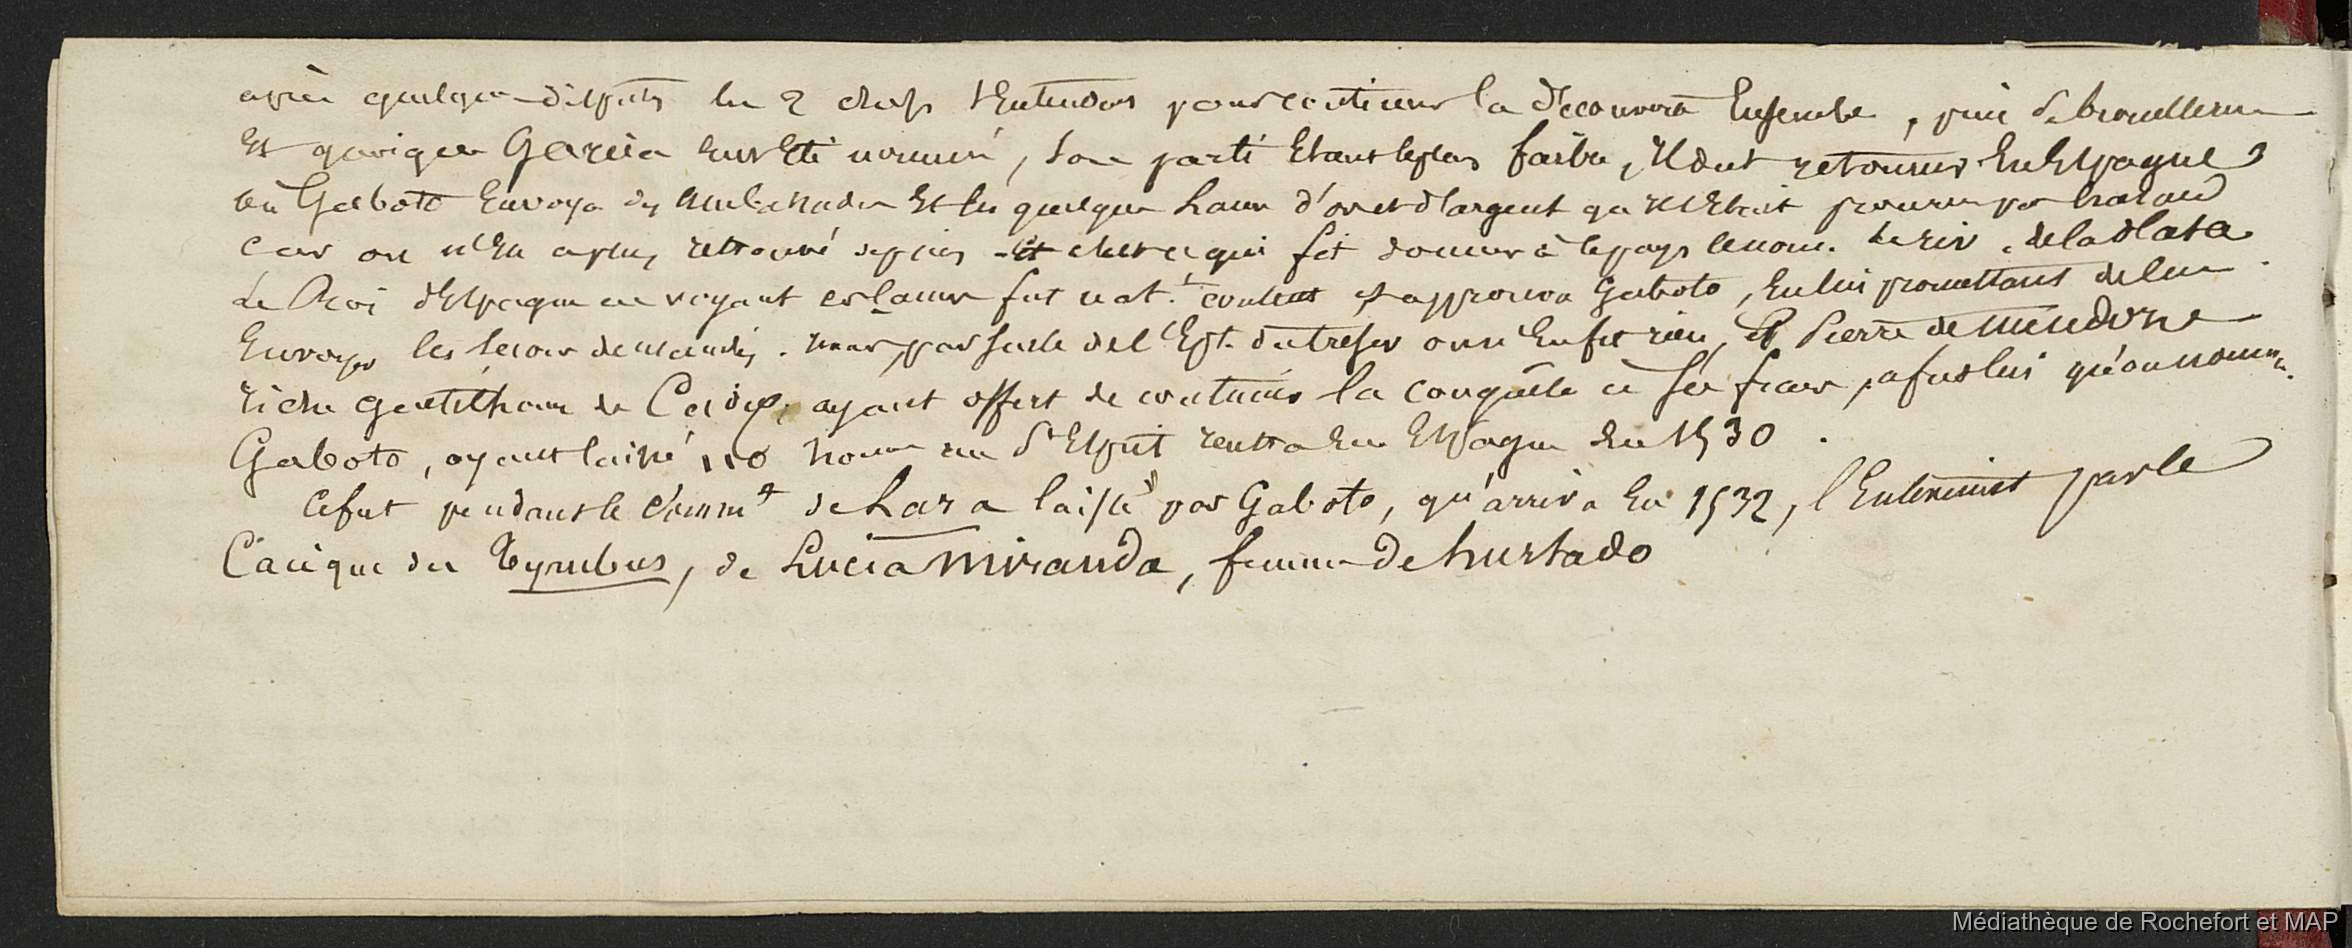 après quelques disputes les 2 chefs s'entendirent pour continuer la découverte Ensemble, puis se brouillerent
Et quoique Garcia eut Eté nommé, son parti Etant le plus faible, Il dut retourner En Espagne
où Gaboto Envoya des Ambassades Et les quelques d'or et d'argent qu'il s'Etait procuré par hazard
car on n'En a plus retrouvé depuis - et c'est ce qui fit donner à le pays le nom de riv. de la Plata
Le Roi d'Espagne en voyant es fut nat.t content et approuva Gaboto, En lui promettant de lui
Envoyer les secours demandés. mais, par suite de l' du tresor on n'En fit rien, et Pierre de Mendoze
riche gentilhome de Cadix, ayant offert de continuer la conquête à ses frais, ce fut lui qu'on nomma.
Gaboto, ayant laissé 110 hommes au St Esprit rentra En Espagne En 1530.
Ce fut pendant le Comm.t de Lara laissé par Gaboto, qu'arriva En 1532, l'Enlevement par le
Cacique des Tymbus, de Lucia Miranda, femme de hurtado
Médiathèque de Rochefort et MAP